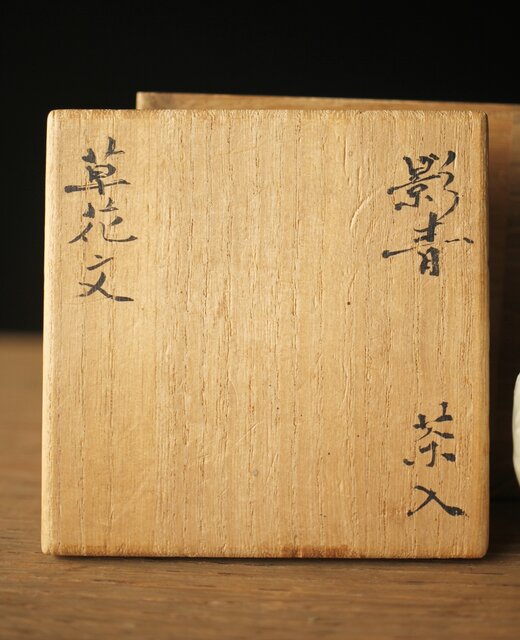 影青 茶入
草花文